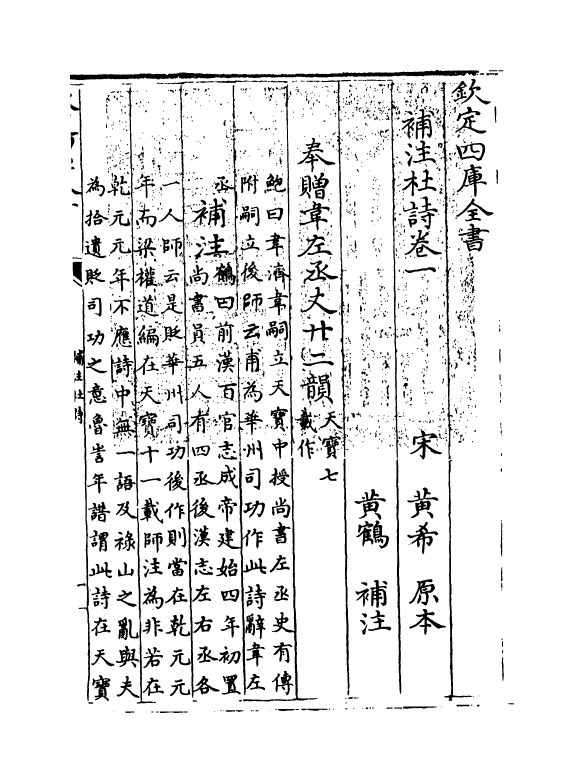 欽定四庫全書
補注杜詩卷一
宋 黃希 原本
黃鶴 補注
奉贈韋左丞丈廿二韻
天寶七
載作
鮑曰韋濟韋嗣立天寶中授尚書左丞史有傳
附嗣立後師云甫為華州司功作此詩辭韋左
丞
補注
鶴曰前漢百官志成帝建始四年初置
尚書員五人有四丞後漢志左右丞各
一人師云是貶華州司功後作則當在乾元元
年而梁權道編在天寶十一載師注為非若在
乾元元年不應詩中無一語及祿山之亂與夫
為拾遺貶司功之意魯訔年譜謂此詩在天寶
補注杜詩
一